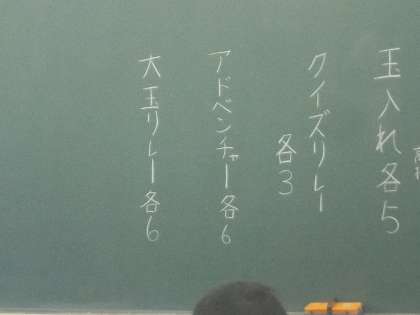 玉入れ各5
クイズリレー
各3
アドベンチャー各6
大玉リレー各6